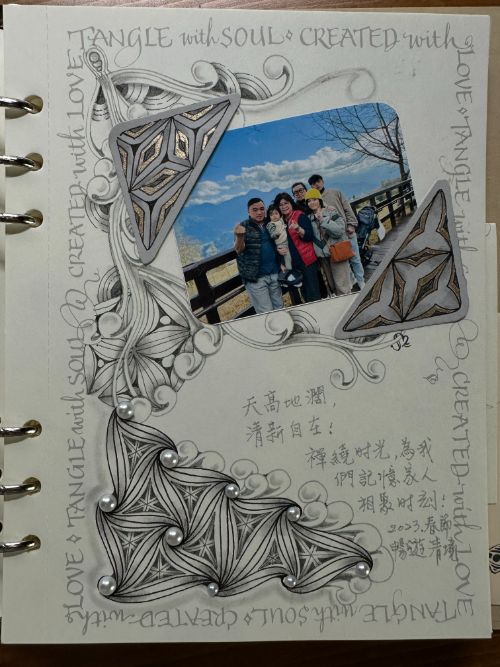 TANGLE with SOUL ◇ CREATED with
LOVE ◇ TANGLE with
CREATED with LOVE
TANGLE with SOUL ◇ CREATED with
LOVE ◇ TANGLE with SOUL
CREATED with LOVE
天高地濶,
清新自在!
禪繞时光,為我
們記憶家人
相聚时刻!
2023.春節
暢遊清境